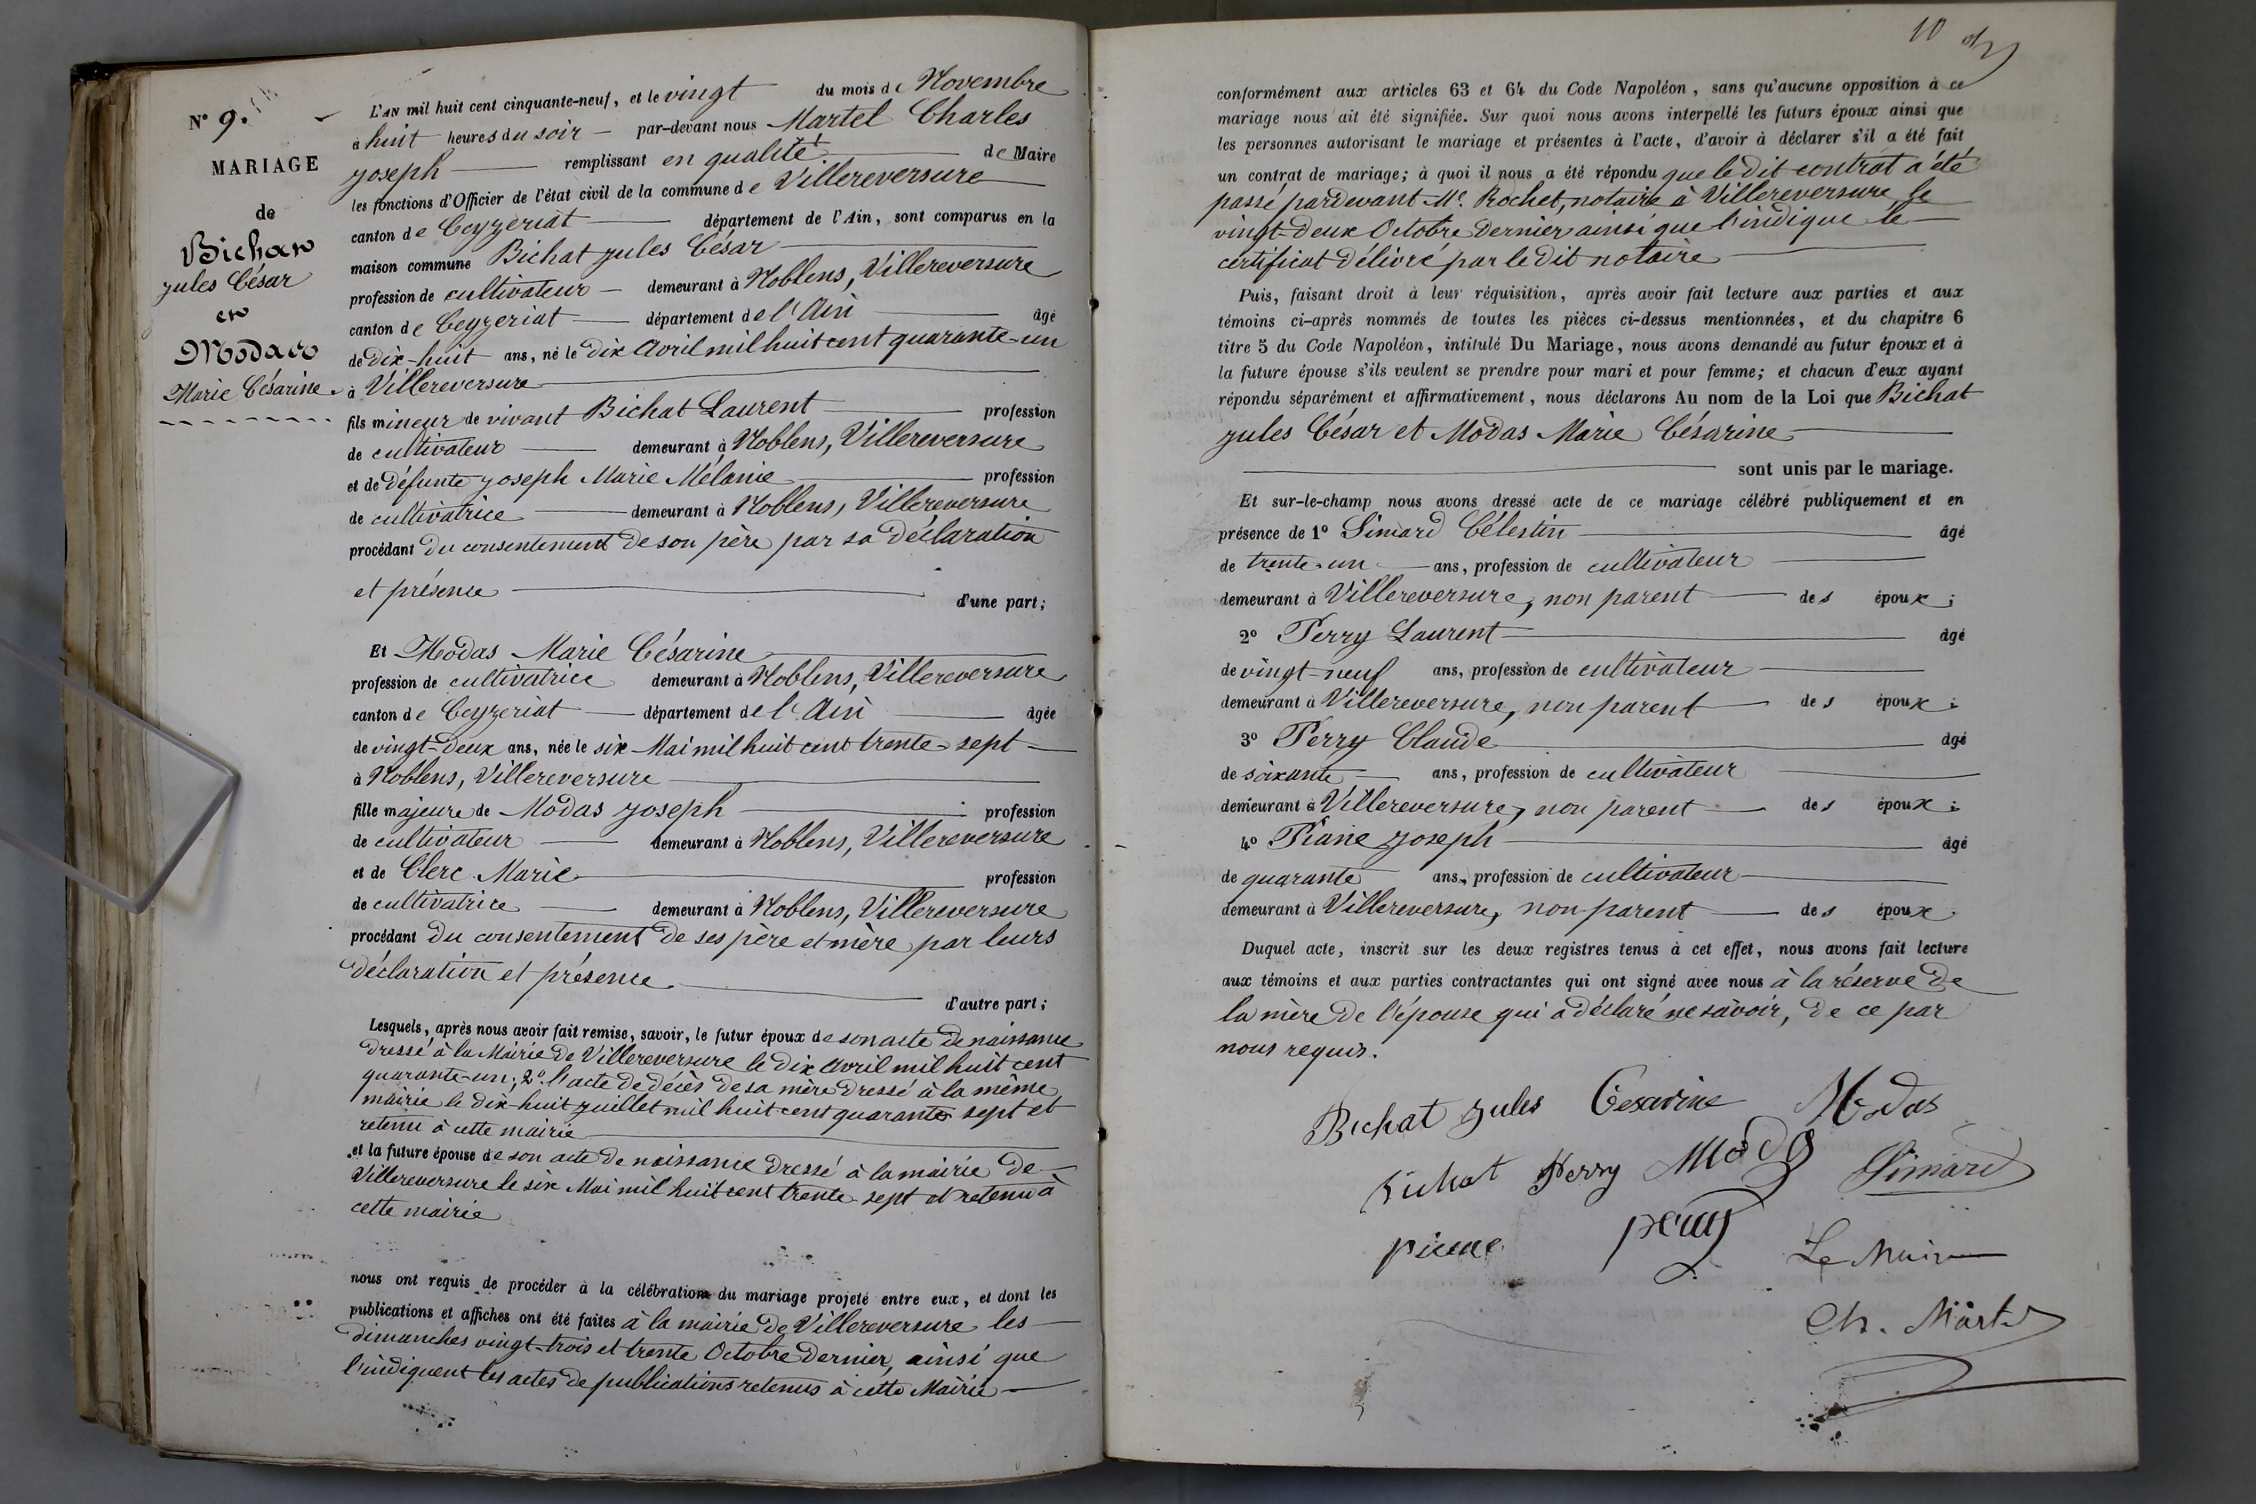 N° 9.
MARIAGE
de
Bichat
Jules César
et
Modas
Marie Césarine
L'AN mil huit cent cinquante-neuf, et le vingt du mois de Novembre
à huit heures du soir — par-devant nous Martel Charles
Joseph — remplissant en qualité de Maire
les fonctions d'Officier de l'état civil de la commune de Villereversure
canton de Ceyzeriat — département de l'Ain, sont comparus en la
maison commune Bichat Jules César
profession de cultivateur — demeurant à Noblens, Villereversure
canton de Ceyzeriat — département de l'Ain — âgé
de dix-huit ans, né le dix Avril mil huit cent quarante-un
à Villereversure
fils mineur de vivant Bichat Laurent — profession
de cultivateur — demeurant à Noblens, Villereversure
et de défunte Joseph Marie Mélanie — profession
de cultivatrice — demeurant à Noblens, Villereversure
procédant du consentement de son père par sa déclaration
et présence
d'une part;
Et Modas Marie Césarine
profession de cultivatrice demeurant à Noblens, Villereversure
canton de Ceyzeriat — département de l'Ain — âgée
de vingt-deux ans, née le six Mai mil huit cent trente-sept —
à Noblens, Villereversure
fille majeure de Modas Joseph — profession
de cultivateur — demeurant à Noblens, Villereversure
et de Clerc Marie — profession
de cultivatrice — demeurant à Noblens, Villereversure
procédant du consentement de ses père et mère par leurs
déclaration et présence
d'autre part;
Lesquels, après nous avoir fait remise, savoir, le futur époux de son acte de naissance
dressé à la Mairie de Villereversure le dix Avril mil huit cent
quarante-un; 2° l'acte de décès de sa mère dressé à la même
mairie le dix-huit Juillet mil huit cent quarante sept et
retenu à cette mairie
et la future épouse de son acte de naissance dressé à la mairie de
Villereversure le six Mai mil huit cent trente-sept et retenu à
cette mairie
nous ont requis de procéder à la célébration du mariage projeté entre eux, et dont les
publications et affiches ont été faites à la mairie de Villereversure les
dimanches vingt-trois et trente Octobre dernier, ainsi que
l'indiquent les actes de publications retenus à cette Mairie —
10
conformément aux articles 63 et 64 du Code Napoléon, sans qu'aucune opposition à ce
mariage nous ait été signifiée. Sur quoi nous avons interpellé les futurs époux ainsi que
les personnes autorisant le mariage et présentes à l'acte, d'avoir à déclarer s'il a été fait
un contrat de mariage; à quoi il nous a été répondu que le dit contrat a été
passé pardevant Me. Rochet, notaire à Villereversure le
vingt-deux Octobre dernier ainsi que l'indique le
certificat délivré par le dit notaire
Puis, faisant droit à leur réquisition, après avoir fait lecture aux parties et aux
témoins ci-après nommés de toutes les pièces ci-dessus mentionnées, et du chapitre 6
titre 5 du Code Napoléon, intitulé Du Mariage, nous avons demandé au futur époux et à
la future épouse s'ils veulent se prendre pour mari et pour femme; et chacun d'eux ayant
répondu séparément et affirmativement, nous déclarons Au nom de la Loi que Bichat
Jules César et Modas Marie Césarine
sont unis par le mariage.
Et sur-le-champ nous avons dressé acte de ce mariage célébré publiquement et en
présence de 1° Simard Célestin — âgé
de trente-un — ans, profession de cultivateur
demeurant à Villereversure, non parent — des époux;
2° Perry Laurent — âgé
de vingt-neuf ans, profession de cultivateur
demeurant à Villereversure, non parent — des époux;
3° Perry Claude — âgé
de soixante — ans, profession de cultivateur
demeurant à Villereversure, non parent — des époux;
4° Piane Joseph — âgé
de quarante ans, profession de cultivateur
demeurant à Villereversure, non parent — des époux
Duquel acte, inscrit sur les deux registres tenus à cet effet, nous avons fait lecture
aux témoins et aux parties contractantes qui ont signé avec nous à la réserve de
la mère de l'épouse qui a déclaré ne savoir, de ce par
nous requis.
Bichat Jules Césarine Modas
Bichat Perry Modas Simard
piane perry Le Maire
Ch. Martel